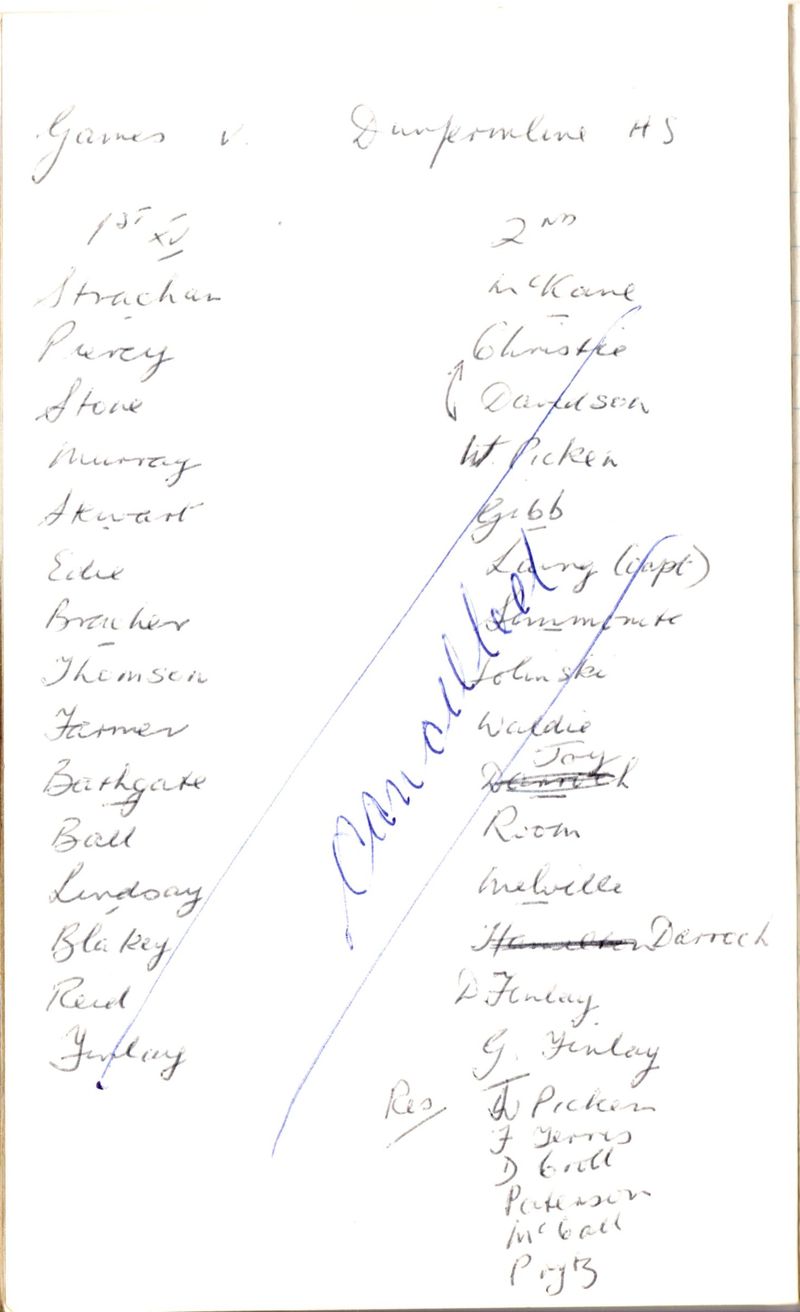 Games v. Dunfermline HS
1ST XV
Strachan
Piercy
Stone
Murray
Stewart
Edie
Bracher
Thomson
Farmer
Bathgate
Ball
Lindsay
Blakey
Reid
Finlay
2ND
McKane
Christie
Davidson
W. Picken
Gibb
Laing (capt)
Simmonite
Solinski
Waldie
Joy
Darroch
Room
Melville
Hamilton Darroch
D Finlay
G. Finlay
Res W Picken
F Ferris
D Croll
Paterson
McCall
Prytz
cancelled